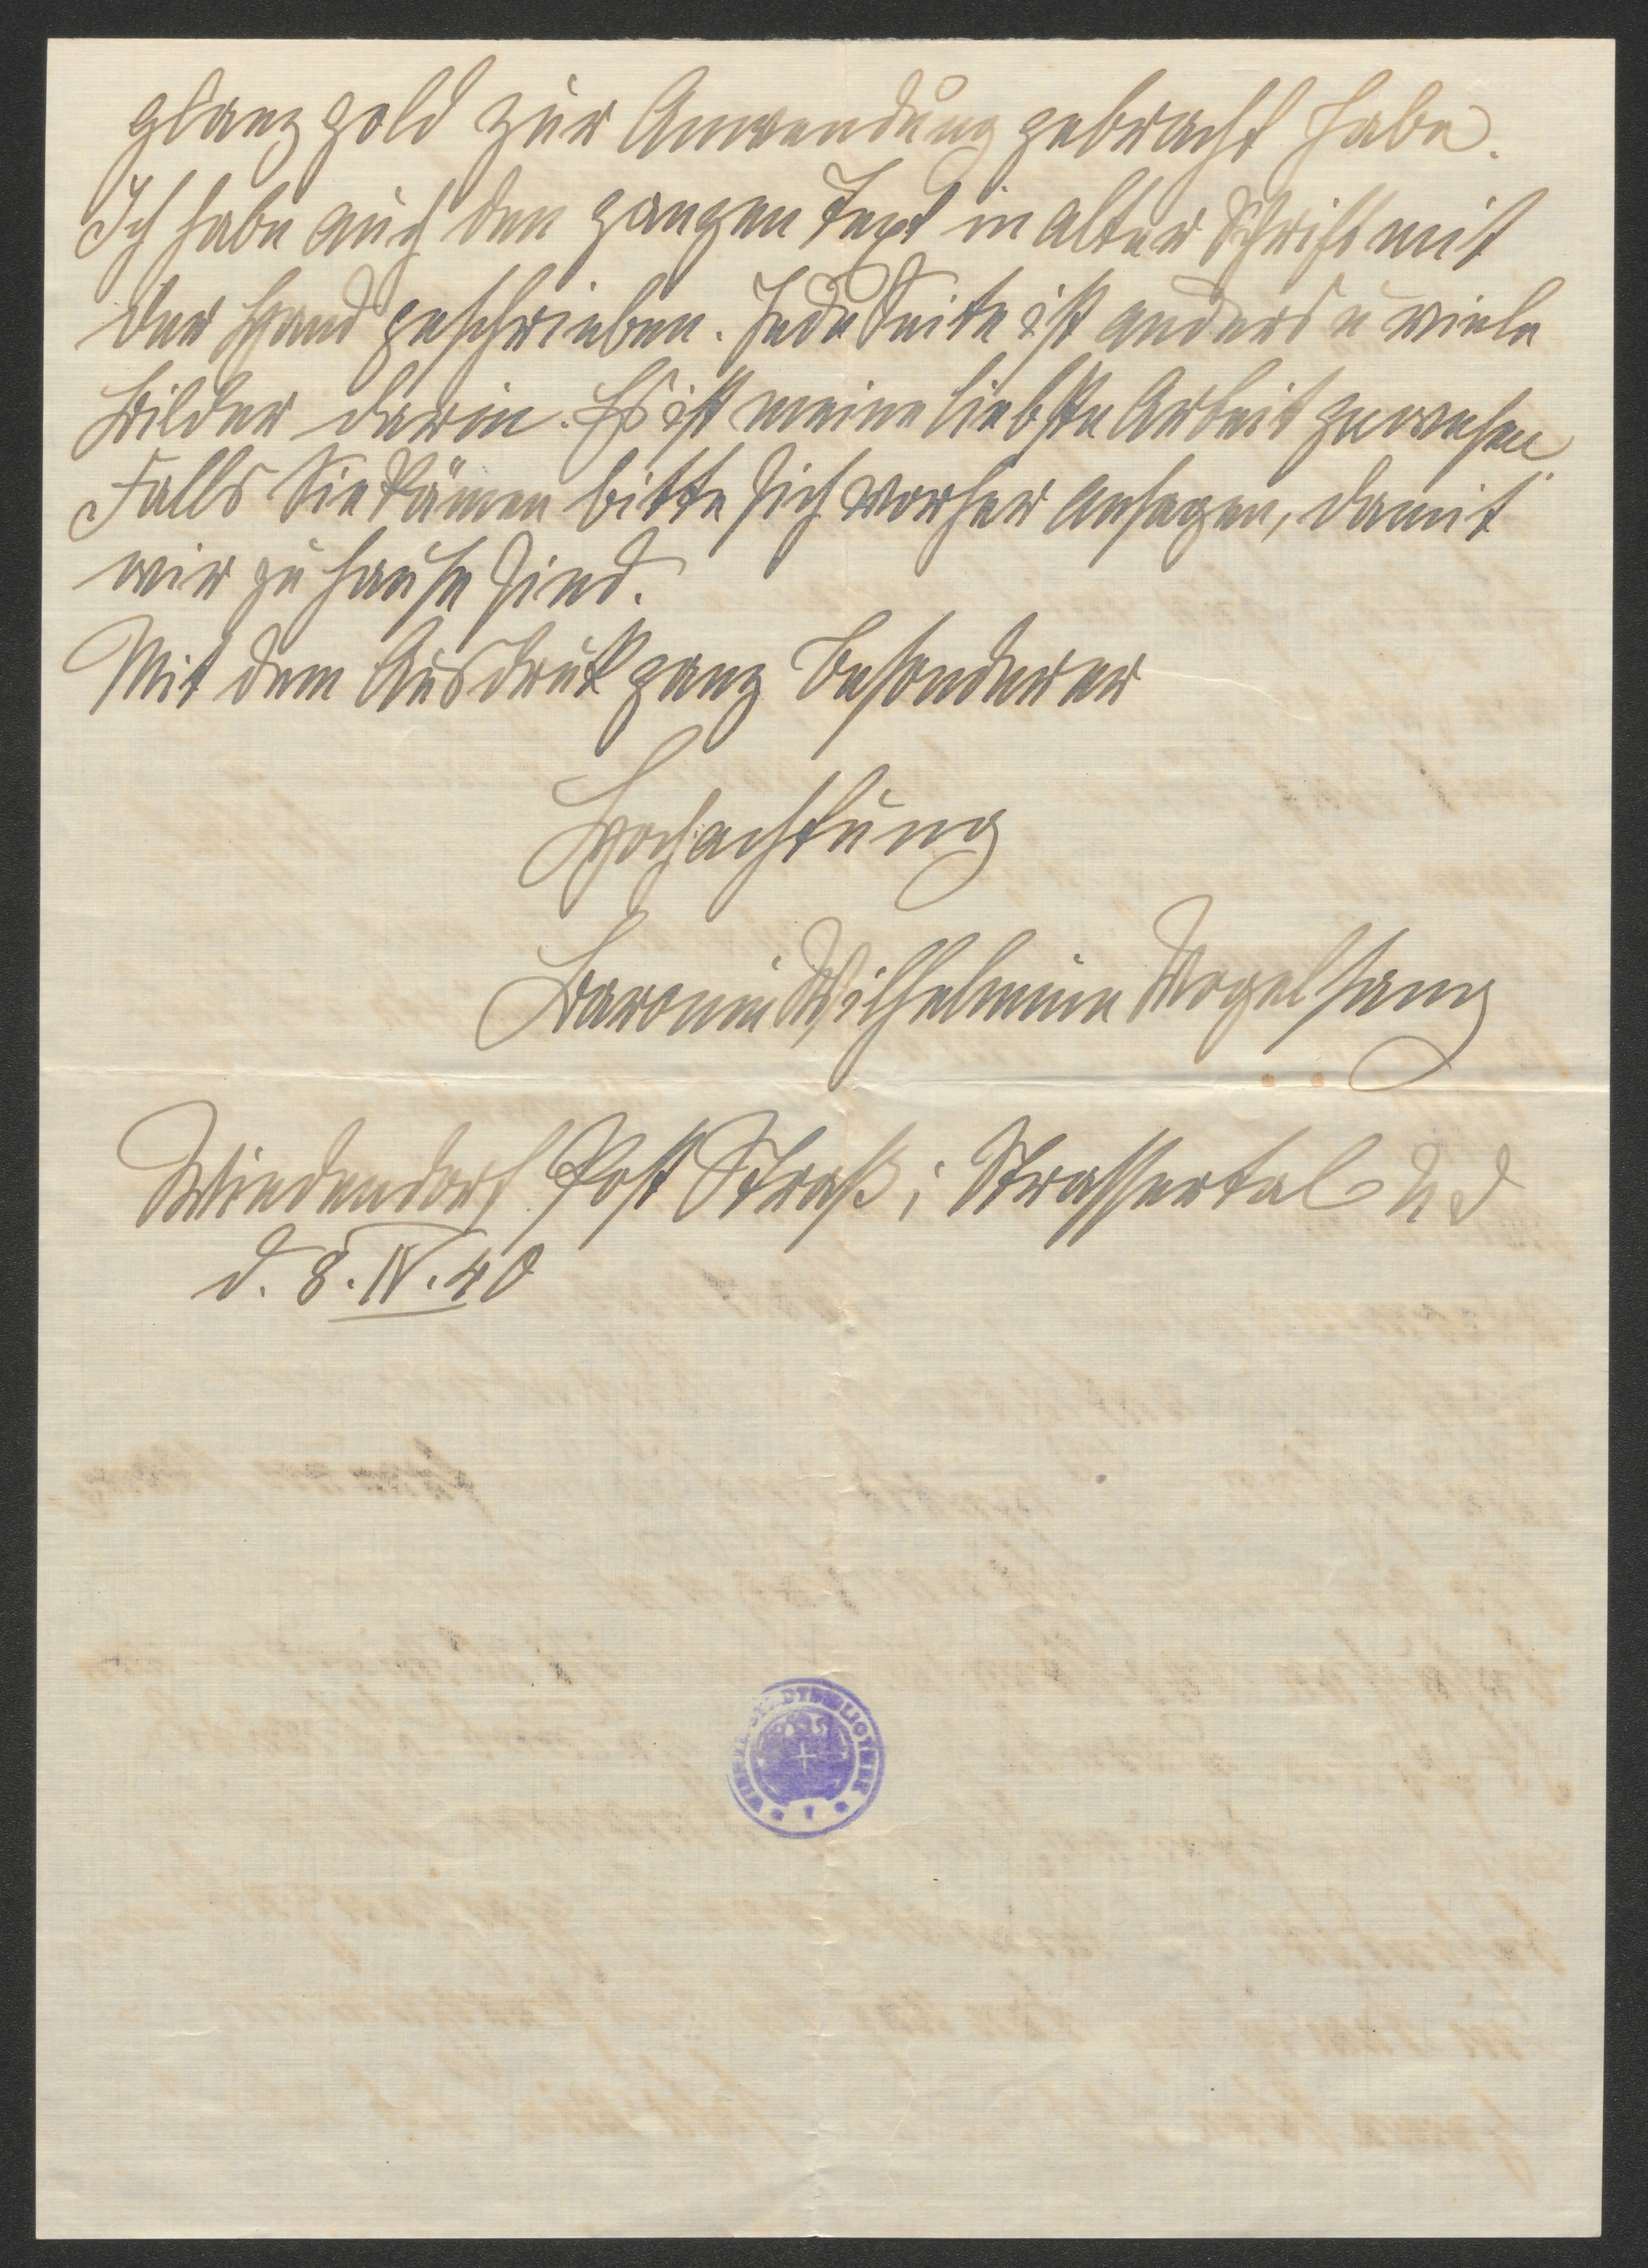 glanzgold zur Anwendung gebracht habe.
Ich habe auch den ganzen Text in alter Schrift mit
der Hand geschrieben. Jede Seite ist anders u viele
Bilder darin. Es ist meine liebste Arbeit gewesen.
Falls Sie kämen bitte sich vorher ansagen, damit
wir zu hause sind.
Mit dem Ausdruk ganz besonderer
Hochachtung
Baronin Wilhelmine Vogelsang
Wiedendorf Post Straß i Strassertal N d
d. 8. IV. 40
WIENER STADTBIBLIOTHEK